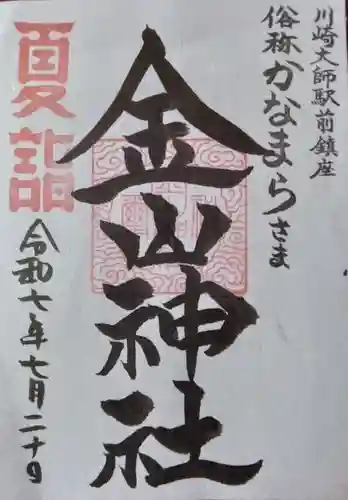 川崎大師駅前鎮座
俗称かなまらさま
金山神社
夏詣
令和七年七月二十日